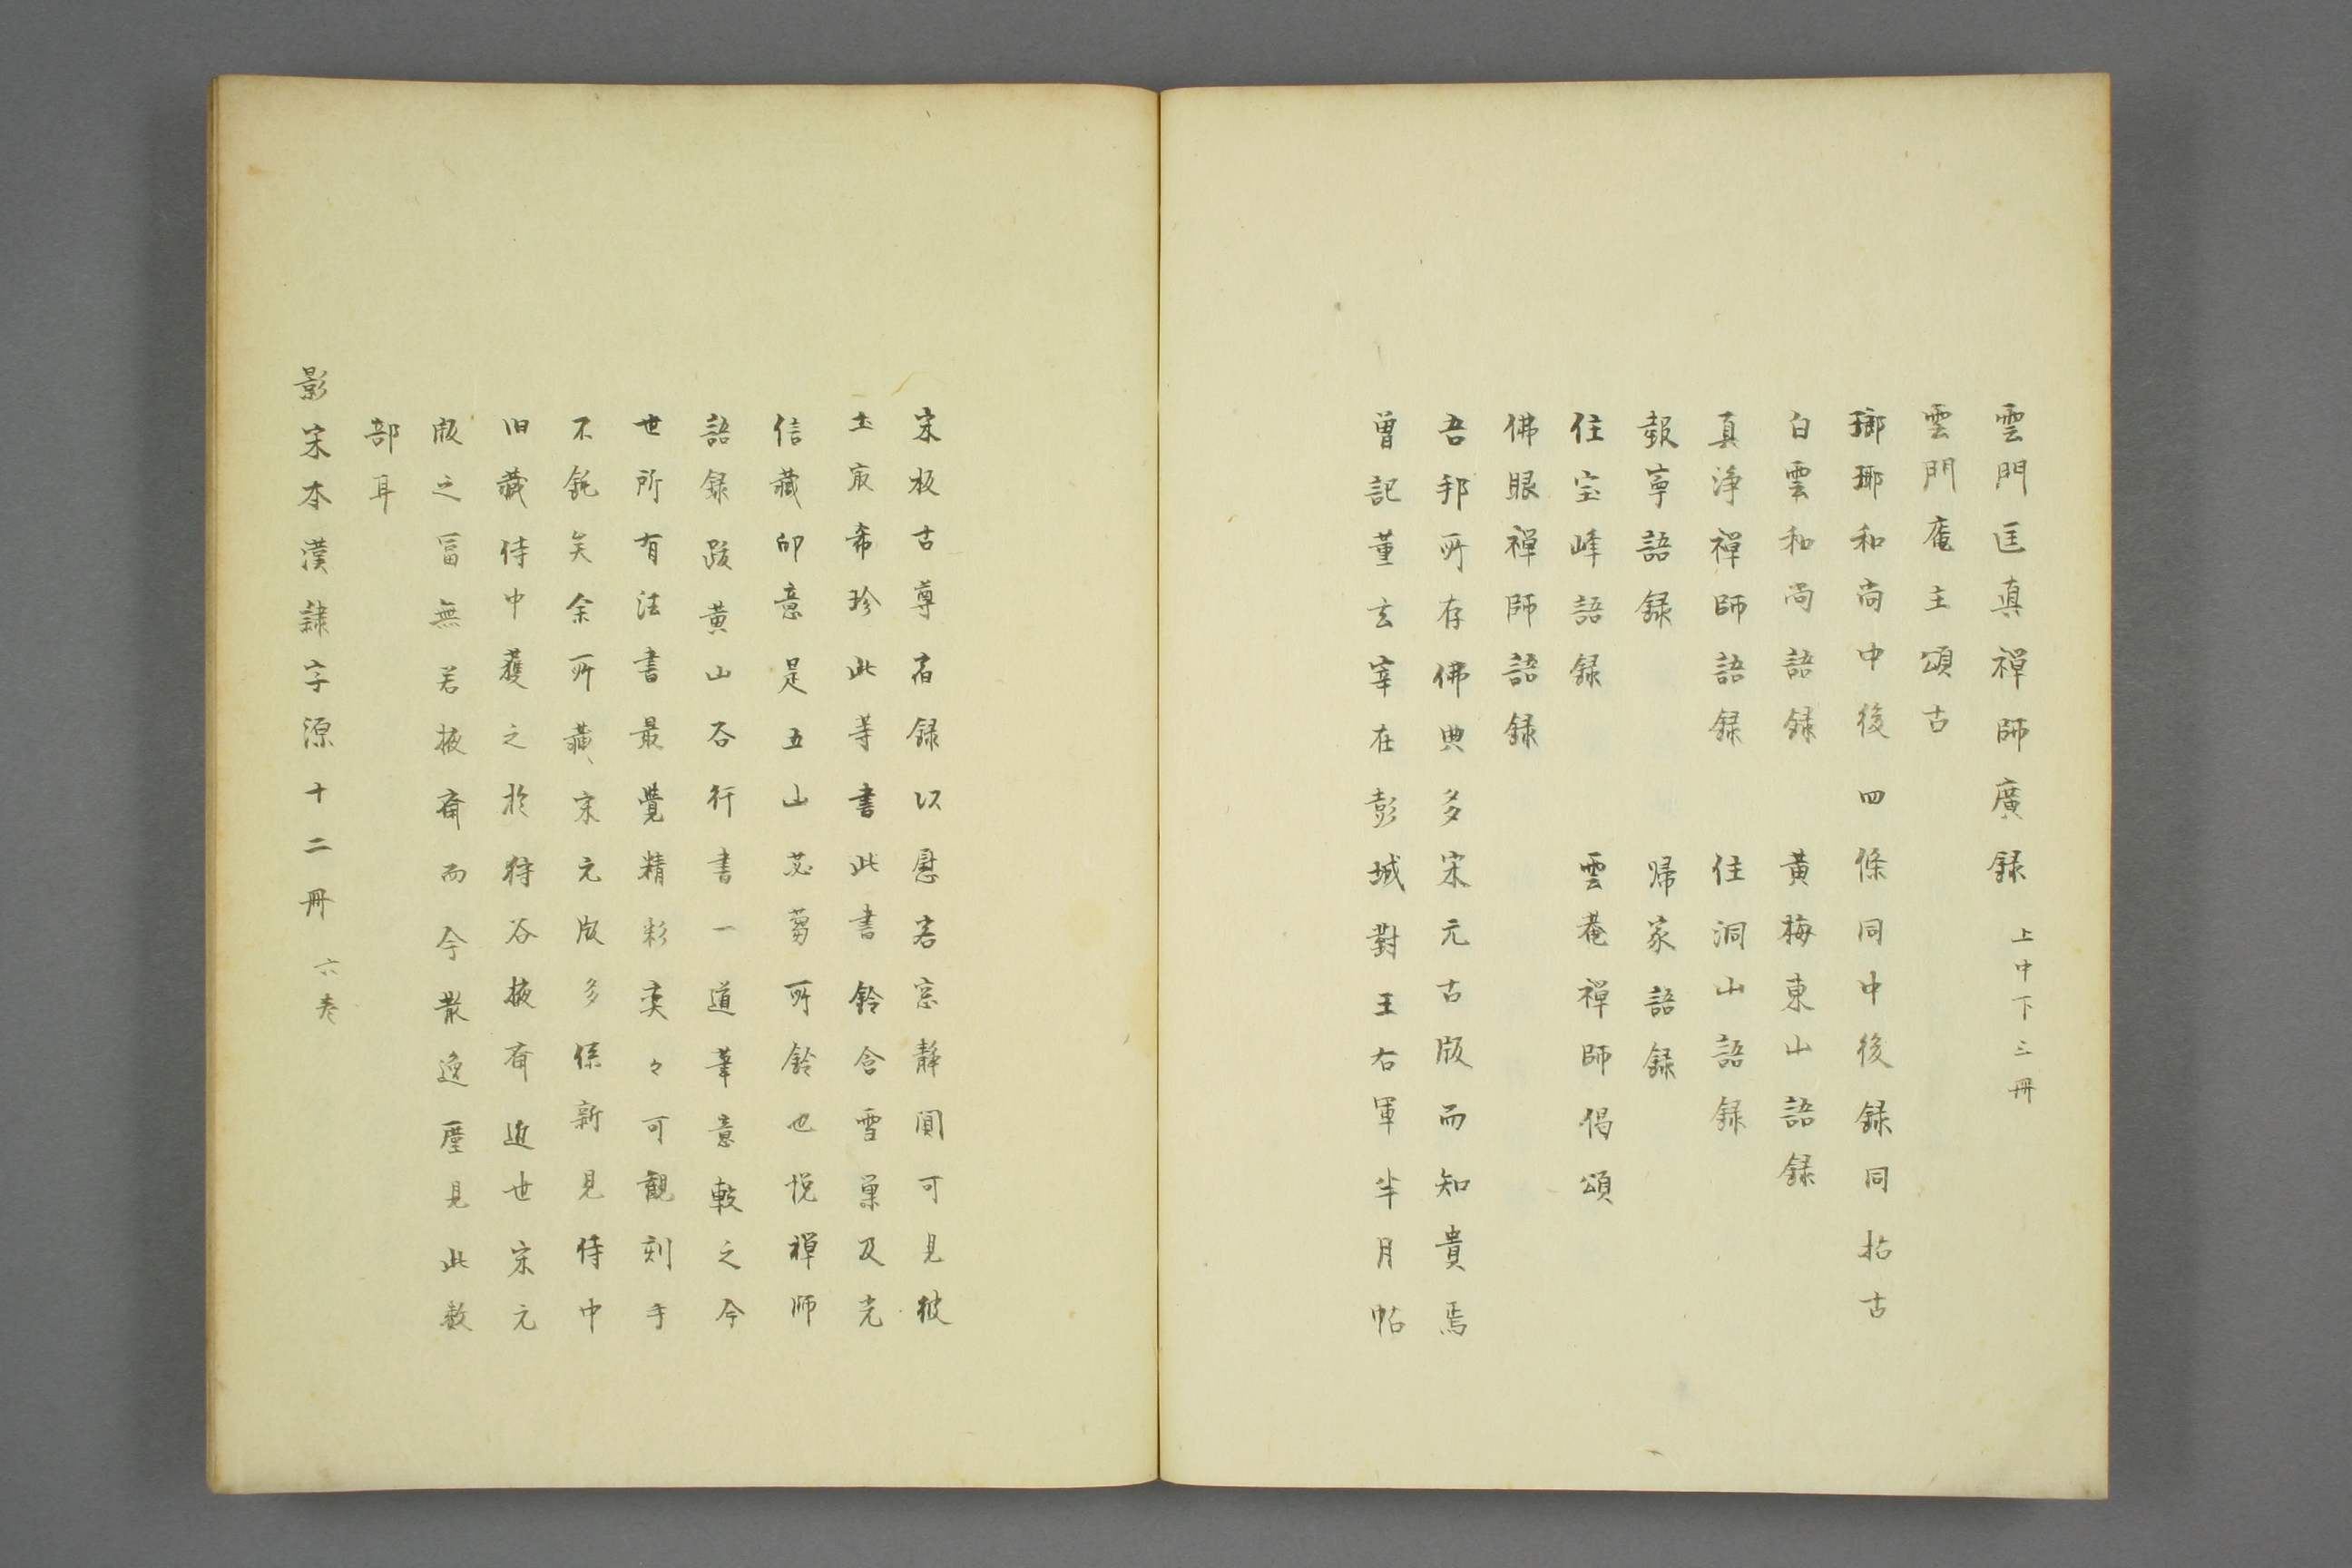 雲門匡真禅師廣録 上中下三冊
雲門庵主頌古
瑯琊和尚中後四條同中後録同拈古
白雲和尚語録 黄梅東山語録
真浄禅師語録 住洞山語録
報寧語録 帰家語録
住宝峰語録 雲菴禅師偈頌
佛眼禅師語録
吾邦所存佛典多宋元古版而知貴焉
曽記董玄宰在彭城對王右軍半月帖
宋板古尊宿録以慰客窓静闃可見彼
土寂希珍此等書此書鈴含雪巣及光
信藏印意是五山苾蒭所鈴也悦禅師
語録跋黄山谷行書一道筆意較之今
世所有法書最覺精彩奕々可觀刻手
不鈍矣余所藏宋元版多係新見侍中
旧藏侍中獲之於狩谷掖斎近世宋元
版之冨無若掖斎而今散逸塵見此数
部耳
影宋本漢隷字源十二冊 六巻